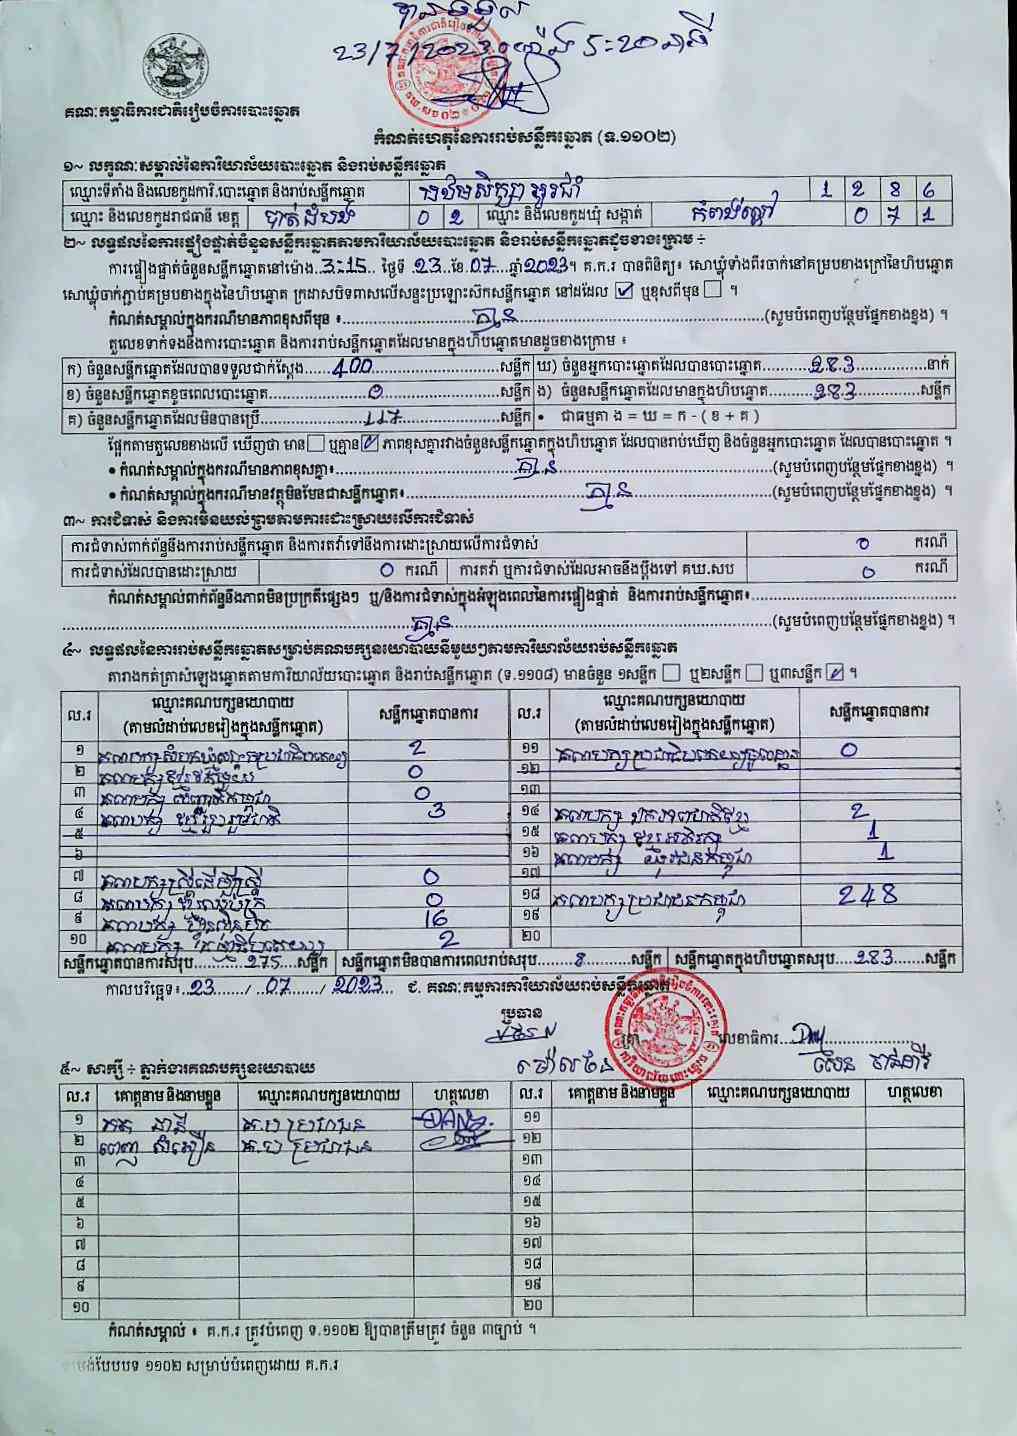 បានទទួល
23/7/2023 ម៉ោង ៤:២០នាទី
គណៈកម្មាធិការជាតិរៀបចំការបោះឆ្នោត
កំណត់ហេតុនៃការរាប់សន្លឹកឆ្នោត (ទ.១១០២)
១~ លក្ខណៈសម្គាល់នៃការិយាល័យបោះឆ្នោត និងរាប់សន្លឹកឆ្នោត
ឈ្មោះទីតាំង និងលេខកូដការិ.បោះឆ្នោត និងរាប់សន្លឹកឆ្នោត បឋមសិក្សា អូរដា 1 2 8 6
ឈ្មោះ និងលេខកូដរាជធានី ខេត្ត បាត់ដំបង 0 2 ឈ្មោះ និងលេខកូដឃុំ សង្កាត់ កំពង់ល្ពៅ 0 7 1
២~ លទ្ធផលនៃការផ្ទៀងផ្ទាត់ចំនួនសន្លឹកឆ្នោតតាមការិយាល័យបោះឆ្នោត និងរាប់សន្លឹកឆ្នោតដូចខាងក្រោម ÷
ការផ្ទៀងផ្ទាត់ចំនួនសន្លឹកឆ្នោតនៅម៉ោង..3:15.. ថ្ងៃទី .23..ខែ.07...ឆ្នាំ2023។ គ.ក.រ បានពិនិត្យ៖ សោឃ្លុំទាំងពីរចាក់នៅគម្របខាងក្រៅនៃហិបឆ្នោត
សោឃ្លុំចាក់ភ្ជាប់គម្របខាងក្នុងនៃហិបឆ្នោត ក្រដាសបិទពាសលើសន្ទះប្រឡោះស៊កសន្លឹកឆ្នោត នៅដដែល ☑ ឬខុសពីមុន ☐ ។
កំណត់សម្គាល់ក្នុងករណីមានភាពខុសពីមុន ៖ គ្មាន (សូមបំពេញបន្ថែមផ្នែកខាងខ្នង) ។
តួលេខទាក់ទងនឹងការបោះឆ្នោត និងការរាប់សន្លឹកឆ្នោតដែលមានក្នុងហិបឆ្នោតមានដូចខាងក្រោម ៖
ក) ចំនួនសន្លឹកឆ្នោតដែលបានទទួលជាក់ស្ដែង......400......សន្លឹក ឃ) ចំនួនអ្នកបោះឆ្នោតដែលបានបោះឆ្នោត......283......នាក់
ខ) ចំនួនសន្លឹកឆ្នោតខូចពេលបោះឆ្នោត......0......សន្លឹក ង) ចំនួនសន្លឹកឆ្នោតដែលមានក្នុងហិបឆ្នោត......283......សន្លឹក
គ) ចំនួនសន្លឹកឆ្នោតដែលមិនបានប្រើ......117......សន្លឹក • ជាធម្មតា ង = ឃ = ក - ( ខ + គ )
ផ្អែកតាមតួលេខខាងលើ ឃើញថា មាន ☐ ឬគ្មាន ☑ ភាពខុសគ្នារវាងចំនួនសន្លឹកឆ្នោតក្នុងហិបឆ្នោត ដែលបានរាប់ឃើញ និងចំនួនអ្នកបោះឆ្នោត ដែលបានបោះឆ្នោត ។
• កំណត់សម្គាល់ក្នុងករណីមានភាពខុសគ្នា៖ គ្មាន (សូមបំពេញបន្ថែមផ្នែកខាងខ្នង) ។
• កំណត់សម្គាល់ក្នុងករណីមានវត្ថុមិនមែនជាសន្លឹកឆ្នោត៖ គ្មាន (សូមបំពេញបន្ថែមផ្នែកខាងខ្នង) ។
៣~ ការជំទាស់ និងការមិនយល់ព្រមតាមការដោះស្រាយលើការជំទាស់
ការជំទាស់ពាក់ព័ន្ធនឹងការរាប់សន្លឹកឆ្នោត និងការតវ៉ាទៅនឹងការដោះស្រាយលើការជំទាស់ 0 ករណី
ការជំទាស់ដែលបានដោះស្រាយ 0 ករណី ការតវ៉ា ឬការជំទាស់ដែលអាចនឹងប្ដឹងទៅ គឃ.សប 0 ករណី
កំណត់សម្គាល់ពាក់ព័ន្ធនឹងភាពមិនប្រក្រតីផ្សេងៗ ឬ/និងការជំទាស់ក្នុងអំឡុងពេលនៃការផ្ទៀងផ្ទាត់ និងការរាប់សន្លឹកឆ្នោត៖
គ្មាន (សូមបំពេញបន្ថែមផ្នែកខាងខ្នង) ។
៤~ លទ្ធផលនៃការរាប់សន្លឹកឆ្នោតសម្រាប់គណបក្សនយោបាយនីមួយៗតាមការិយាល័យរាប់សន្លឹកឆ្នោត
តារាងកត់ត្រាសំឡេងឆ្នោតតាមការិយាល័យបោះឆ្នោត និងរាប់សន្លឹកឆ្នោត (ទ.១១០៨) មានចំនួន ១សន្លឹក ☐ ឬ២សន្លឹក ☐ ឬ៣សន្លឹក ☑ ។
ល.រ ឈ្មោះគណបក្សនយោបាយ (តាមលំដាប់លេខរៀងក្នុងសន្លឹកឆ្នោត) សន្លឹកឆ្នោតបានការ ល.រ ឈ្មោះគណបក្សនយោបាយ (តាមលំដាប់លេខរៀងក្នុងសន្លឹកឆ្នោត) សន្លឹកឆ្នោតបានការ
១ គណបក្សសំបុកឃ្មុំសង្គមប្រជាធិបតេយ្យ 2 ១១ គណបក្សប្រជាធិបតេយ្យមូលដ្ឋាន 0
២ គណបក្ស ខ្មែរឥស្សរៈ 0 ១២
៣ គណបក្ស 0 ១៣
៤ គណបក្ស ខ្មែររួបរួមជាតិ 3 ១៤ គណបក្ស ឯកភាពជាតិខ្មែរ 2
៥ ១៥ គណបក្ស ខ្មែរអភិរក្ស 1
៦ ១៦ គណបក្ស យុវជនកម្ពុជា 1
៧ គណបក្សស្ត្រីដើម្បីស្ត្រី 0 ១៧
៨ គណបក្ស ខ្មែរឈប់ក្រ 0 ១៨ គណបក្សប្រជាជនកម្ពុជា 248
៩ គណបក្ស ហ្វ៊ុនស៊ិនប៉ិច 16 ១៩
១០ គណបក្ស 2 ២០
សន្លឹកឆ្នោតបានការសរុប......275......សន្លឹក សន្លឹកឆ្នោតមិនបានការពេលរាប់សរុប......8......សន្លឹក សន្លឹកឆ្នោតក្នុងហិបឆ្នោតសរុប....283......សន្លឹក
កាលបរិច្ឆេទ៖..23....../..07....../..2023... ជ. គណៈកម្មការការិយាល័យរាប់សន្លឹកឆ្នោត
ប្រធាន
ត្រា លេខាធិការ
៥~ សាក្សី ÷ ភ្នាក់ងារគណបក្សនយោបាយ
ល.រ គោត្តនាម និងនាមខ្លួន ឈ្មោះគណបក្សនយោបាយ ហត្ថលេខា ល.រ គោត្តនាម និងនាមខ្លួន ឈ្មោះគណបក្សនយោបាយ ហត្ថលេខា
១ គ.ប ប្រជាជន DANY ១១
២ គ.ប ប្រជាជន ១២
៣ ១៣
៤ ១៤
៥ ១៥
៦ ១៦
៧ ១៧
៨ ១៨
៩ ១៩
១០ ២០
កំណត់សម្គាល់ ៖ គ.ក.រ ត្រូវបំពេញ ទ.១១០២ ឱ្យបានត្រឹមត្រូវ ចំនួន ៣ច្បាប់ ។
ទម្រង់បែបបទ ១១០២ សម្រាប់បំពេញដោយ គ.ក.រ